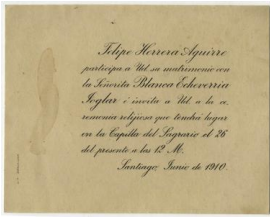 Felipe Herrera Aguirre
participa a Ud. su matrimonio con
la Señorita Blanca Echeverria
Joglar i invita a Ud. a la ce-
remonia relijiosa que tendrá lugar
en la Capilla del Sagrario el 26
del presente a las 12 M.
Santiago, Junio de 1910.